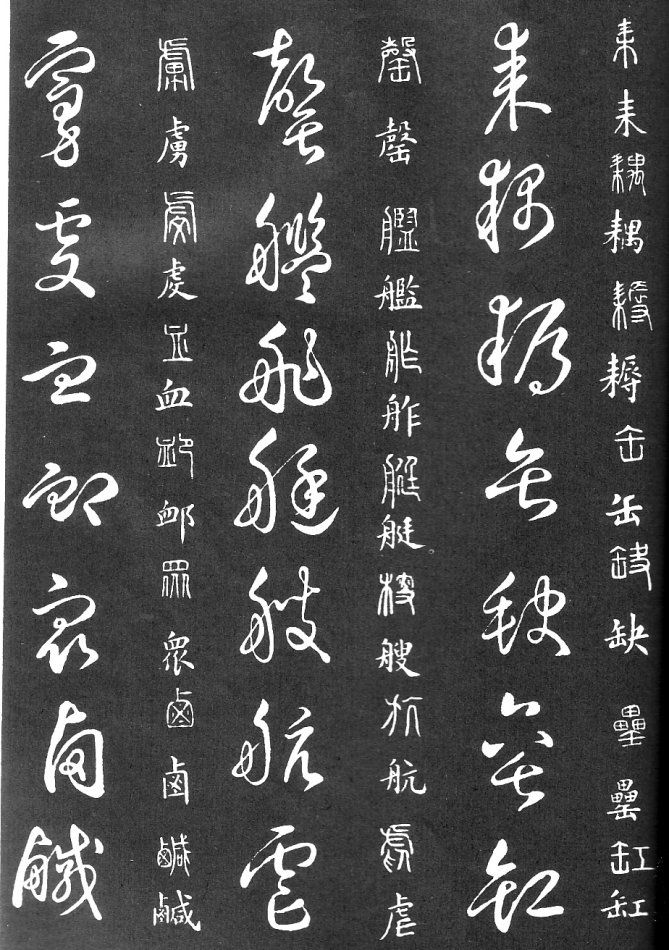 耒耒耦耦耨耨缶缶缺缺罍罍缸缸
耒耦耨缶缺罍缸
罄罄艦艦舴舴艇艇艘艘航航虐虐
罄艦舴艇艘航虐
虜虜虔虔血血卹卹眾眾鹵鹵鹹鹹
虜虔血卹眾鹵鹹